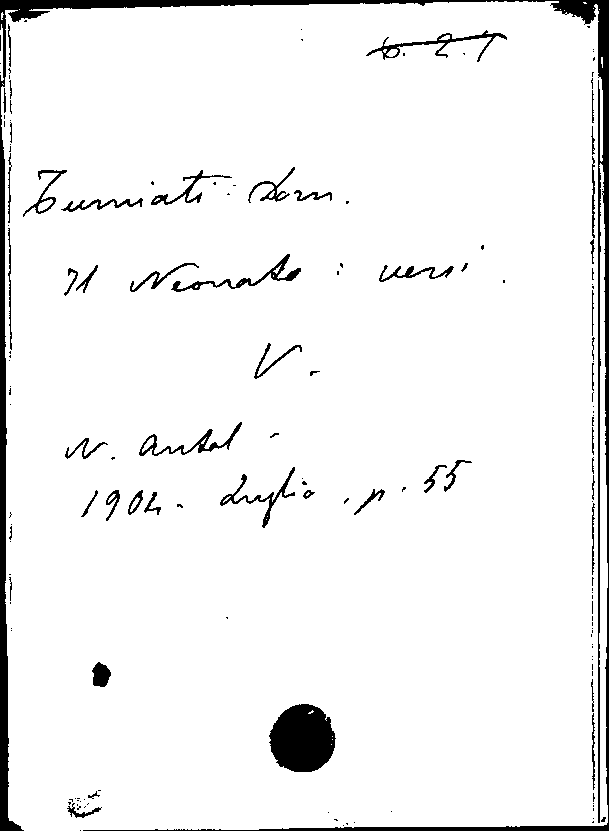 6. 2. 7
Tumiati: Dom.
Il Neonato: versi.
V.
N. Antol -
1904. Luglio, p. 55